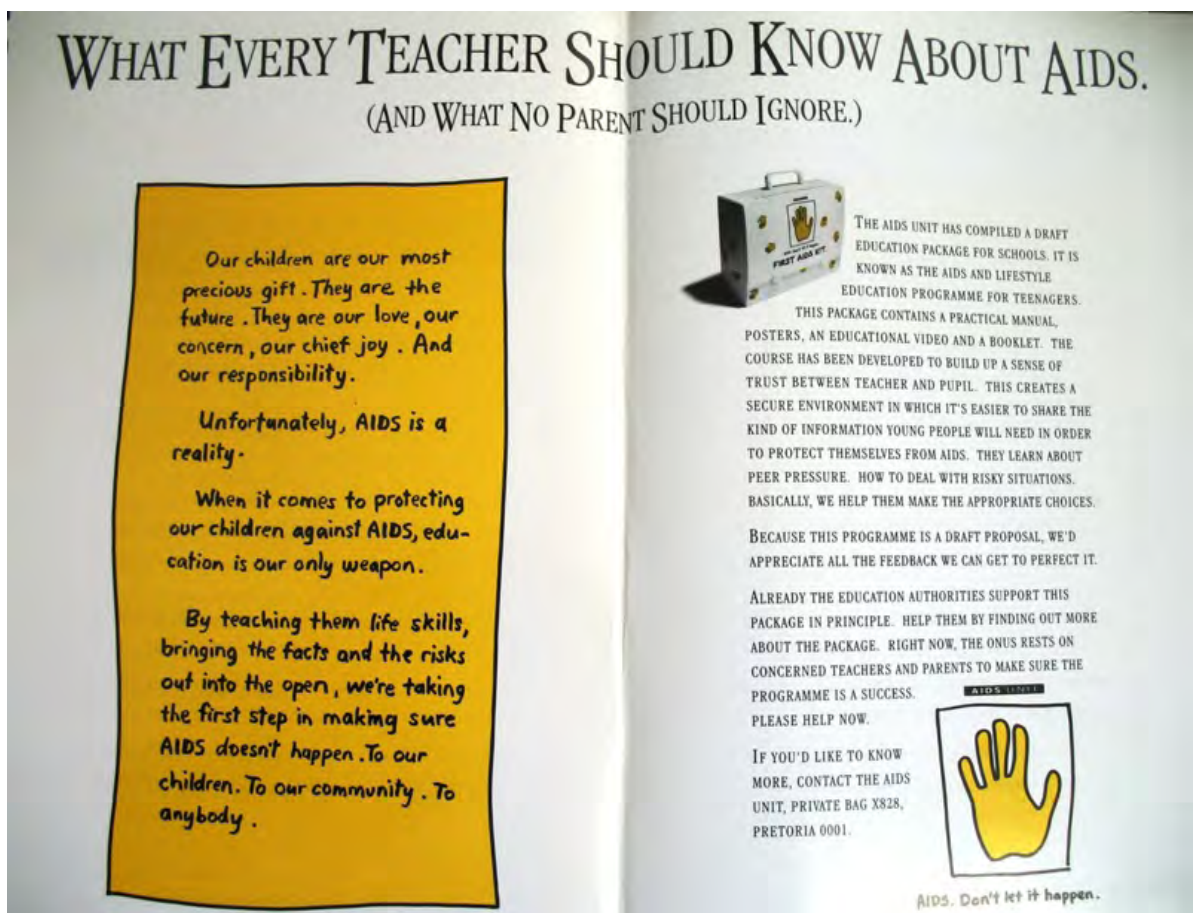 WHAT EVERY TEACHER SHOULD KNOW ABOUT AIDS.
(AND WHAT NO PARENT SHOULD IGNORE.)
Our children are our most
precious gift. They are the
future. They are our love, our
concern, our chief joy. And
our responsibility.
Unfortunately, AIDS is a
reality.
When it comes to protecting
our children against AIDS, edu-
cation is our only weapon.
By teaching them life skills,
bringing the facts and the risks
out into the open, we're taking
the first step in making sure
AIDS doesn't happen. To our
children. To our community. To
anybody.
FIRST AIDS KIT
THE AIDS UNIT HAS COMPILED A DRAFT
EDUCATION PACKAGE FOR SCHOOLS. IT IS
KNOWN AS THE AIDS AND LIFESTYLE
EDUCATION PROGRAMME FOR TEENAGERS.
THIS PACKAGE CONTAINS A PRACTICAL MANUAL,
POSTERS, AN EDUCATIONAL VIDEO AND A BOOKLET. THE
COURSE HAS BEEN DEVELOPED TO BUILD UP A SENSE OF
TRUST BETWEEN TEACHER AND PUPIL. THIS CREATES A
SECURE ENVIRONMENT IN WHICH IT'S EASIER TO SHARE THE
KIND OF INFORMATION YOUNG PEOPLE WILL NEED IN ORDER
TO PROTECT THEMSELVES FROM AIDS. THEY LEARN ABOUT
PEER PRESSURE. HOW TO DEAL WITH RISKY SITUATIONS.
BASICALLY, WE HELP THEM MAKE THE APPROPRIATE CHOICES.
BECAUSE THIS PROGRAMME IS A DRAFT PROPOSAL, WE'D
APPRECIATE ALL THE FEEDBACK WE CAN GET TO PERFECT IT.
ALREADY THE EDUCATION AUTHORITIES SUPPORT THIS
PACKAGE IN PRINCIPLE. HELP THEM BY FINDING OUT MORE
ABOUT THE PACKAGE. RIGHT NOW, THE ONUS RESTS ON
CONCERNED TEACHERS AND PARENTS TO MAKE SURE THE
PROGRAMME IS A SUCCESS.
PLEASE HELP NOW.
IF YOU'D LIKE TO KNOW
MORE, CONTACT THE AIDS
UNIT, PRIVATE BAG X828,
PRETORIA 0001.
AIDS UNIT
AIDS. Don't let it happen.